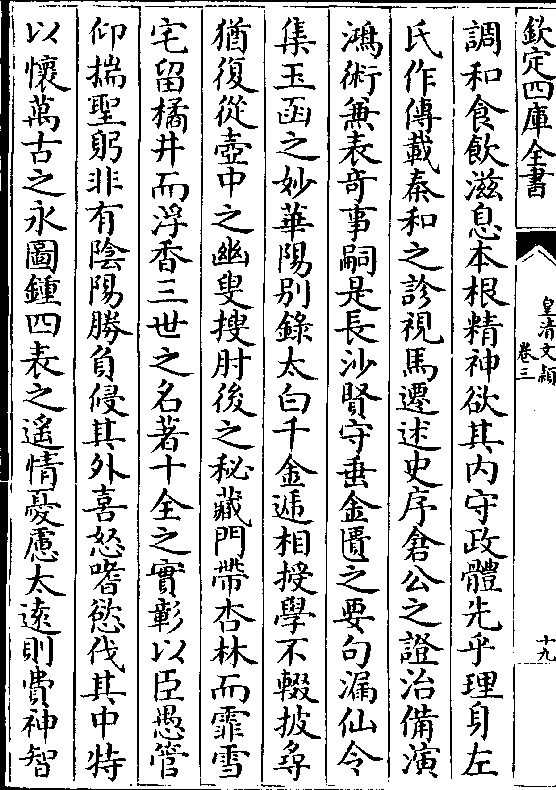 欽定四庫全書
皇清文穎
卷三
十九
調和食飲滋息本根精神欲其内守政體先乎理身左
氏作傳載秦和之診視馬遷述史序倉公之證治備演
鴻術兼表竒事嗣是長沙賢守垂金匱之要句漏仙令
集玉函之妙華陽别錄太白千金遞相授學不輟披尋
猶復從壺中之幽叟搜肘後之秘藏門帶杏林而霏雪
宅留橘井而浮香三世之名著十全之實彰以臣愚管
仰揣聖躬非有陰陽勝負侵其外喜怒嗜慾伐其中特
以懷萬古之永圖鍾四表之遥情憂慮太遠則費神智